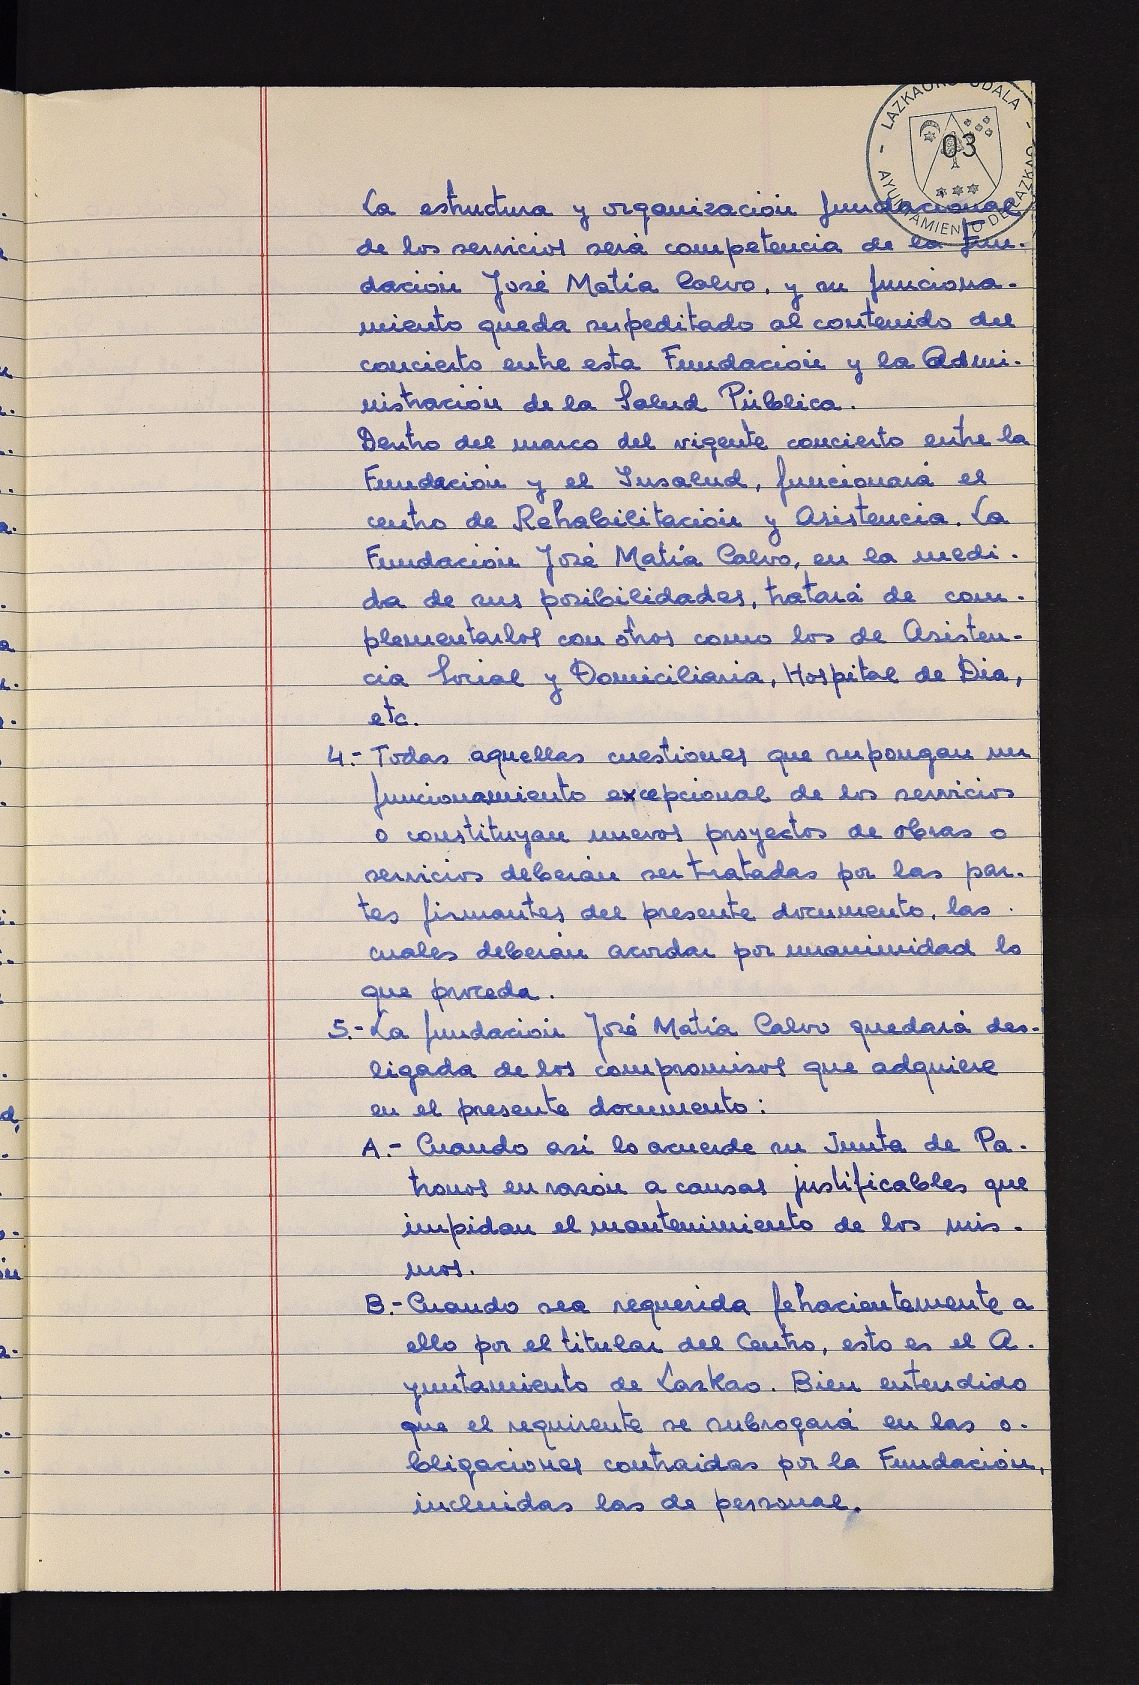 - LAZKAOKO UDALA -
03
AYUNTAMIENTO DE LAZKAO
La estructura y organización fundacional
de los servicios será competencia de la Fun-
dación José Matía Calvo, y su funciona-
miento queda supeditado al contenido del
concierto entre esta Fundación y la Admi-
nistración de la Salud Pública.
Dentro del marco del vigente concierto entre la
Fundación y el Insalud, funcionará el
centro de Rehabilitación y Asistencia. La
Fundación José Matía Calvo, en la medi-
da de sus posibilidades, tratará de com-
plementarlos con otros como los de Asisten-
cia Social y Domiciliaria, Hospital de Dia,
etc.
4.- Todas aquellas cuestiones que supongan un
funcionamiento excepcional de los servicios
o constituyan nuevos proyectos de obras o
servicios deberán ser tratadas por las par-
tes firmantes del presente documento, las
cuales deberán acordar por unanimidad lo
que proceda.
5.- La fundación José Matía Calvo quedará des-
ligada de los compromisos que adquiere
en el presente documento:
A.- Cuando así lo acuerde su Junta de Pa-
tronos en razón a causas justificables que
impidan el mantenimiento de los mis-
mos.
B.- Cuando sea requerida fehacientemente a
ello por el titular del Centro, esto es el A-
yuntamiento de Lazkao. Bien entendido
que el requirente se subrogará en las o-
bligaciones contraidas por la Fundación,
incluidas las de personal.